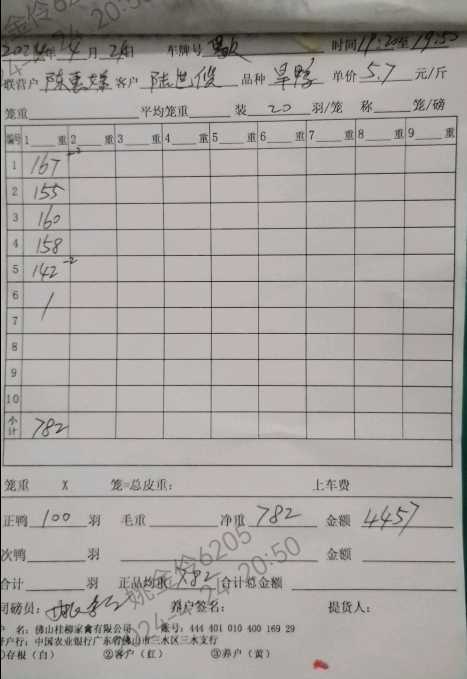 2024年4月24日 车牌号 时间19:20至19:50
联营户 陈惠嫦 客户 品种 旱鸭 单价 5.7 元/斤
笼重 平均笼重 装 20 羽/笼 称 笼/磅
编号 1 重 2 重 3 重 4 重 5 重 6 重 7 重 8 重 9 重
1 167 -2
2 155
3 160
4 158
5 142 -2
6
7
8
9
10
小计 782
笼重 X 笼=总皮重: 上车费
正鸭 100 羽 毛重 净重 782 金额 4457
次鸭 羽 金额
合计 羽 正品均重 7.82 合计总金额
司磅员: 养户签名: 提货人:
户 名: 佛山桂柳家禽有限公司 账号: 444 401 010 400 169 29
开户行: 中国农业银行广东省佛山市三水区三水支行
①存根（白） ②客户（红） ③养户（黄）
姚金伶6205
2024-4-24 20:50